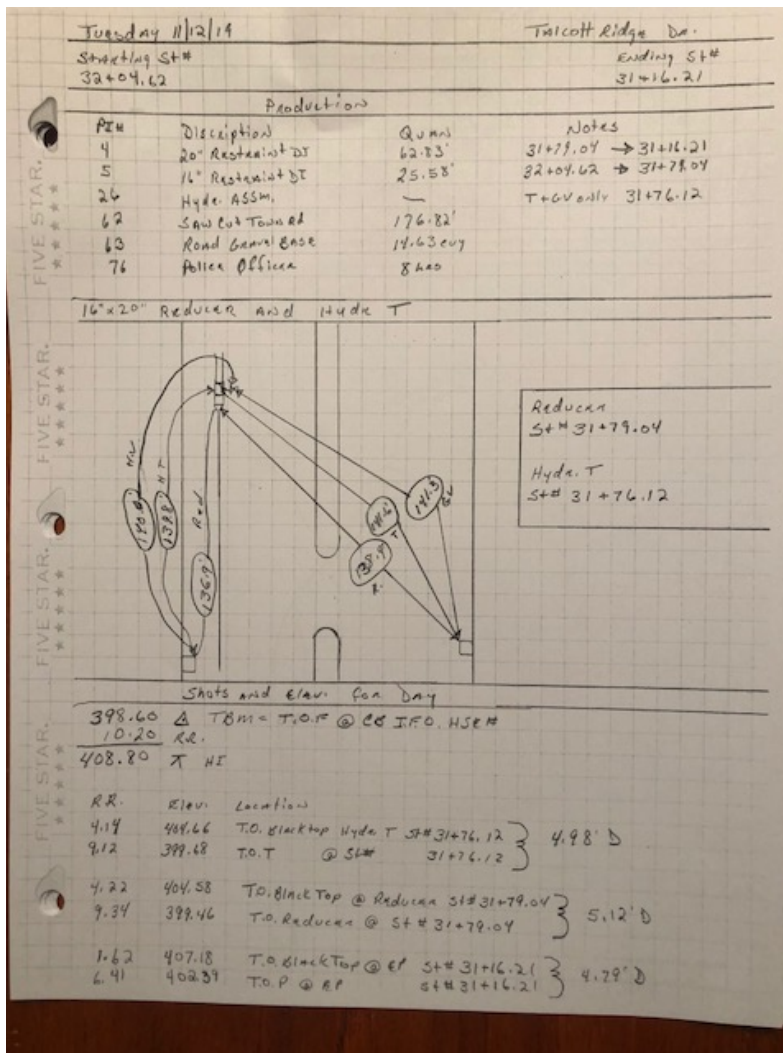 Tuesday 11/12/19 Talcott Ridge Dr.
Starting St# Ending St#
32+04.62 31+16.21
Production
PI# Discription Quan Notes
4 20" Restraint DI 62.83' 31+79.04 → 31+16.21
5 16" Restraint DI 25.58' 32+04.62 → 31+79.04
26 Hydr. ASSM. — T+GV only 31+76.12
62 Saw Cut Town Rd 176.82'
63 Road Gravel Base 14.63 cuy
76 Police Officer 8 hrs
16"x20" Reducer and Hydr T
Reducer
St# 31+79.04
Hydr. T
St# 31+76.12
HT
Red
139.8
136.9'
141.3
GV
T
138.9
R.
Shots and Elev. for Day
398.60 △ TBM = T.O.F @ CB I.F.O. HSE#
10.20 R.R.
408.80 HI
R.R. Elev. Location
4.14 404.66 T.O. Blacktop Hydr T St# 31+76.12 } 4.98' D
9.12 399.68 T.O.T @ St# 31+76.12
4.22 404.58 T.O. BlackTop @ Reducer St# 31+79.04 } 5.12' D
9.34 399.46 T.O. Reducer @ St# 31+79.04
1.62 407.18 T.O. BlackTop @ EP St# 31+16.21 } 4.79' D
6.41 402.39 T.O.P @ EP St# 31+16.21
FIVE STAR.
FIVE STAR.
FIVE STAR.
FIVE STAR.